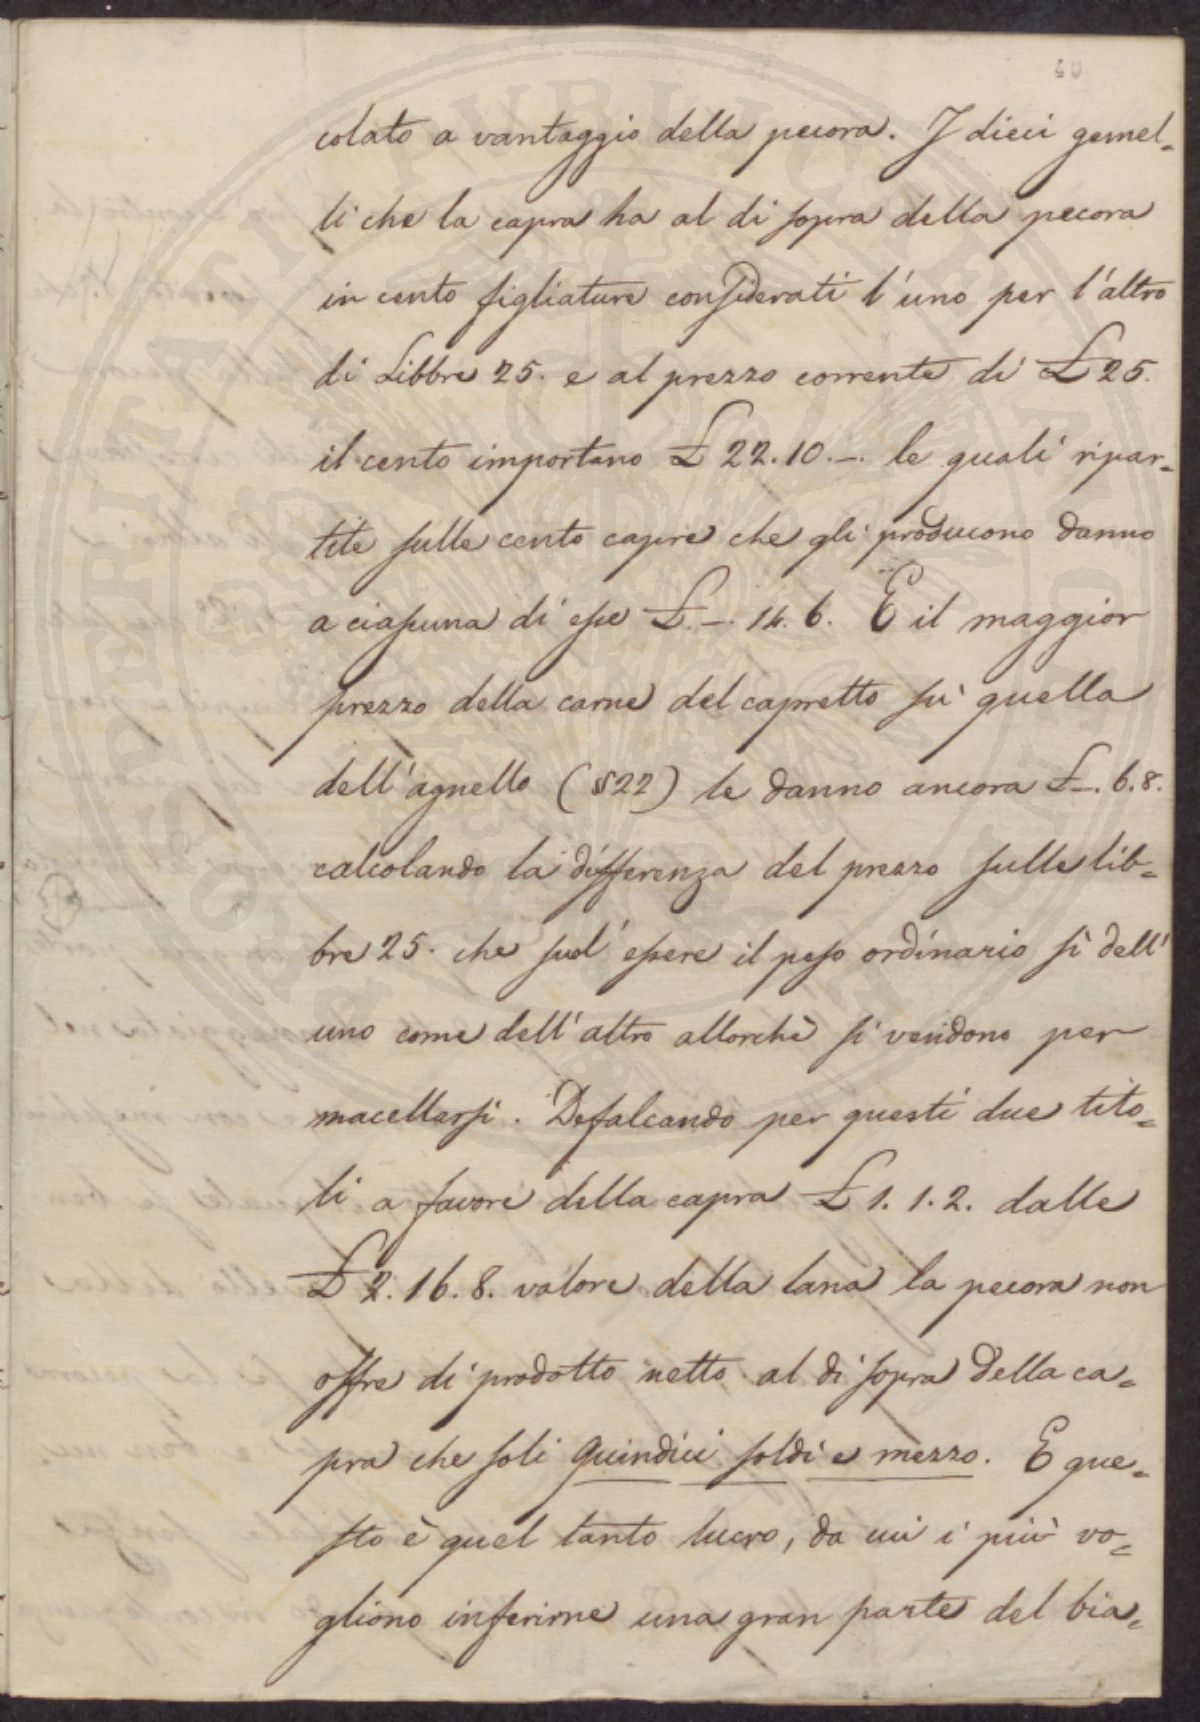 40
colato a vantaggio della pecora. I dieci gemel=
li che la capra ha al di sopra della pecora
in cento figliature considerati l'uno per l'altro
di Libbre 25. e al prezzo corrente di £ 25.
il cento importano £ 22.10.–. le quali ripar=
tite sulle cento capre che gli producono danno
a ciascuna di esse £.–. 14. 6. E il maggior
prezzo della carne del capretto su quella
dell'agnello (§22) le danno ancora £–. 6.8.
calcolando la differenza del prezzo sulle lib=
bre 25. che suol' essere il peso ordinario sì dell'
uno come dell'altro allorchè si vendono per
macellarsi. Defalcando per questi due tito=
li a favore della capra £ 1. 1. 2. dalle
£ 2. 16. 8. valore della lana la pecora non
offre di prodotto netto al di sopra della ca=
pra che soli quindici soldi e mezzo. E que=
sto è quel tanto lucro, da cui i più vo=
gliono inferirne una gran parte del bia=